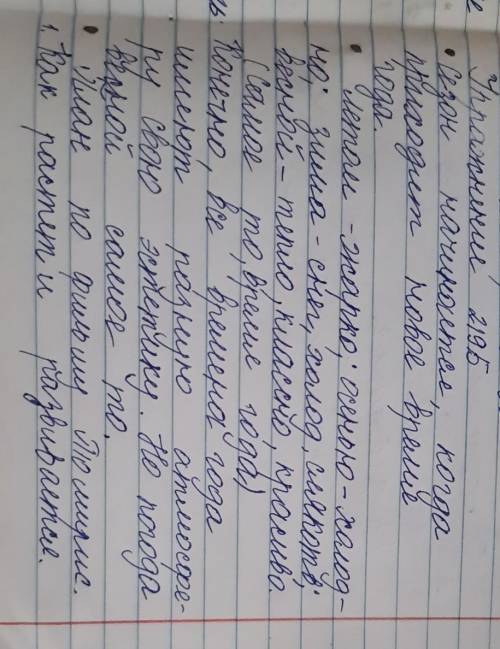 Упражнение 295
• Сезон начинается, когда
приходит новое время
года.
• Летом - жарко; осенью - холод-
но; зима - снег, холод, слякоть;
весной - тепло, классно, красиво.
(Самое то, время года)
Конечно, все времена года
имеют разную атмосфе-
ру свою эстетику. Но погода
весной самое то.
• План по фильму Полюлис.
1. Как растет и развивается.